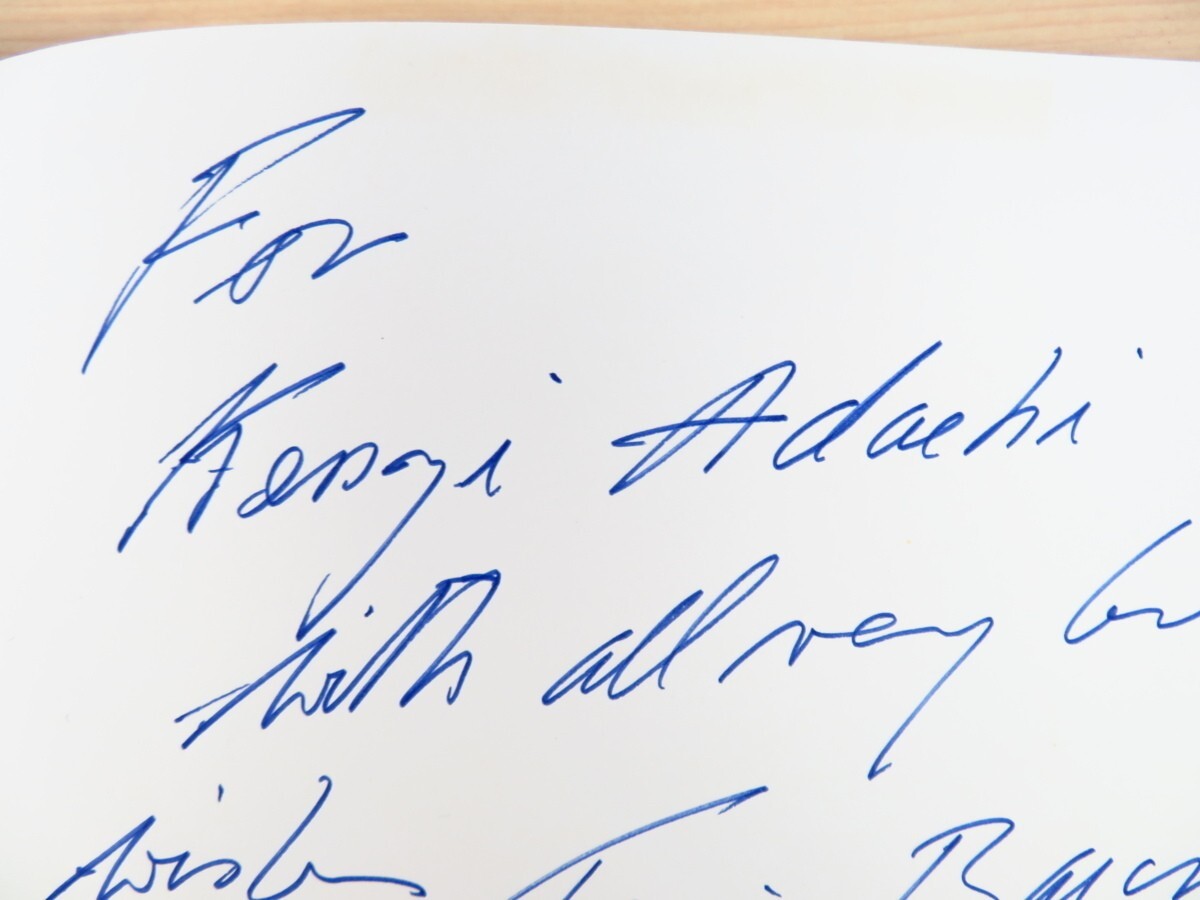 For
Kenji Adachi
with all my
wishes